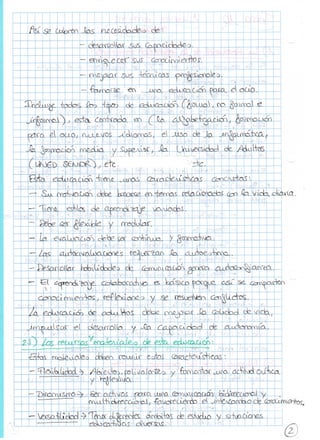 Así se cubren las necesidades de:
- desarrollar sus capacidades.
- enriquecer sus conocimientos.
- mejorar sus técnicas profesionales.
- formarse en una educación para el ocio.
Incluye todos los tipos de educación (formal, no formal e
informal), esta centrada en (la alfabetización, formación
para el ocio, nuevos idiomas, el uso de la informática,
la formación media y superior, la Universidad de Adultos
(UNED SENIOR), etc.
Esta educación tiene unas características concretas:
- Su motivación debe basarse en temas relacionados con la vida diaria.
- Tiene estilos de aprendizaje variados.
- Debe ser flexible y modular.
- La evaluación debe ser continua y formativa.
- Las autoevaluaciones refuerzan la autoestima.
- Desarrollar habilidades de comunicación genera autoconfianza.
- El aprendizaje colaborativo es básico porque así se comparten
conocimientos, reflexiones y se resuelven conflictos.
La educación de adultos debe mejorar la calidad de vida,
impulsar el desarrollo y la capacidad de autonomía.
2.1) Los recursos materiales de esta educación:
Estos materiales deben reunir estas características:
- Flexibilidad → Abiertos, polivalentes y fomentar una actitud crítica
y reflexiva.
- Dinamismo → Ser activos para una comunicación bidireccional y
multidireccional, favoreciendo el intercambio de conocimientos.
- Versatilidad → Tener diferentes ámbitos de estudio y situaciones
educativas diversas.
2